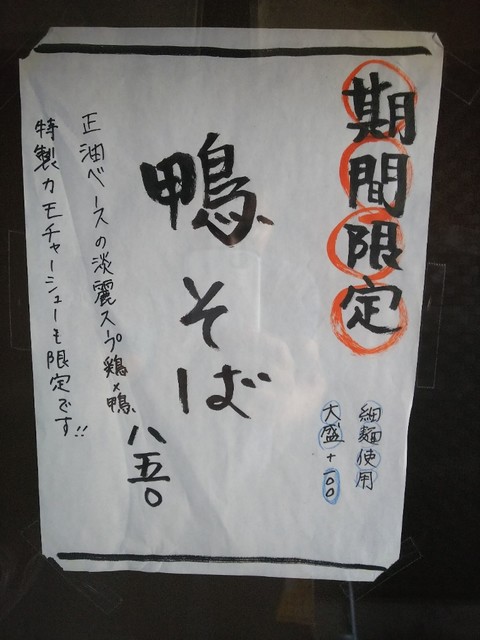 期間限定
細麺使用
大盛+一〇〇
鴨そば
八五〇
正油ベースの淡麗スープ鶏×鴨
特製カモチャーシューも限定です!!